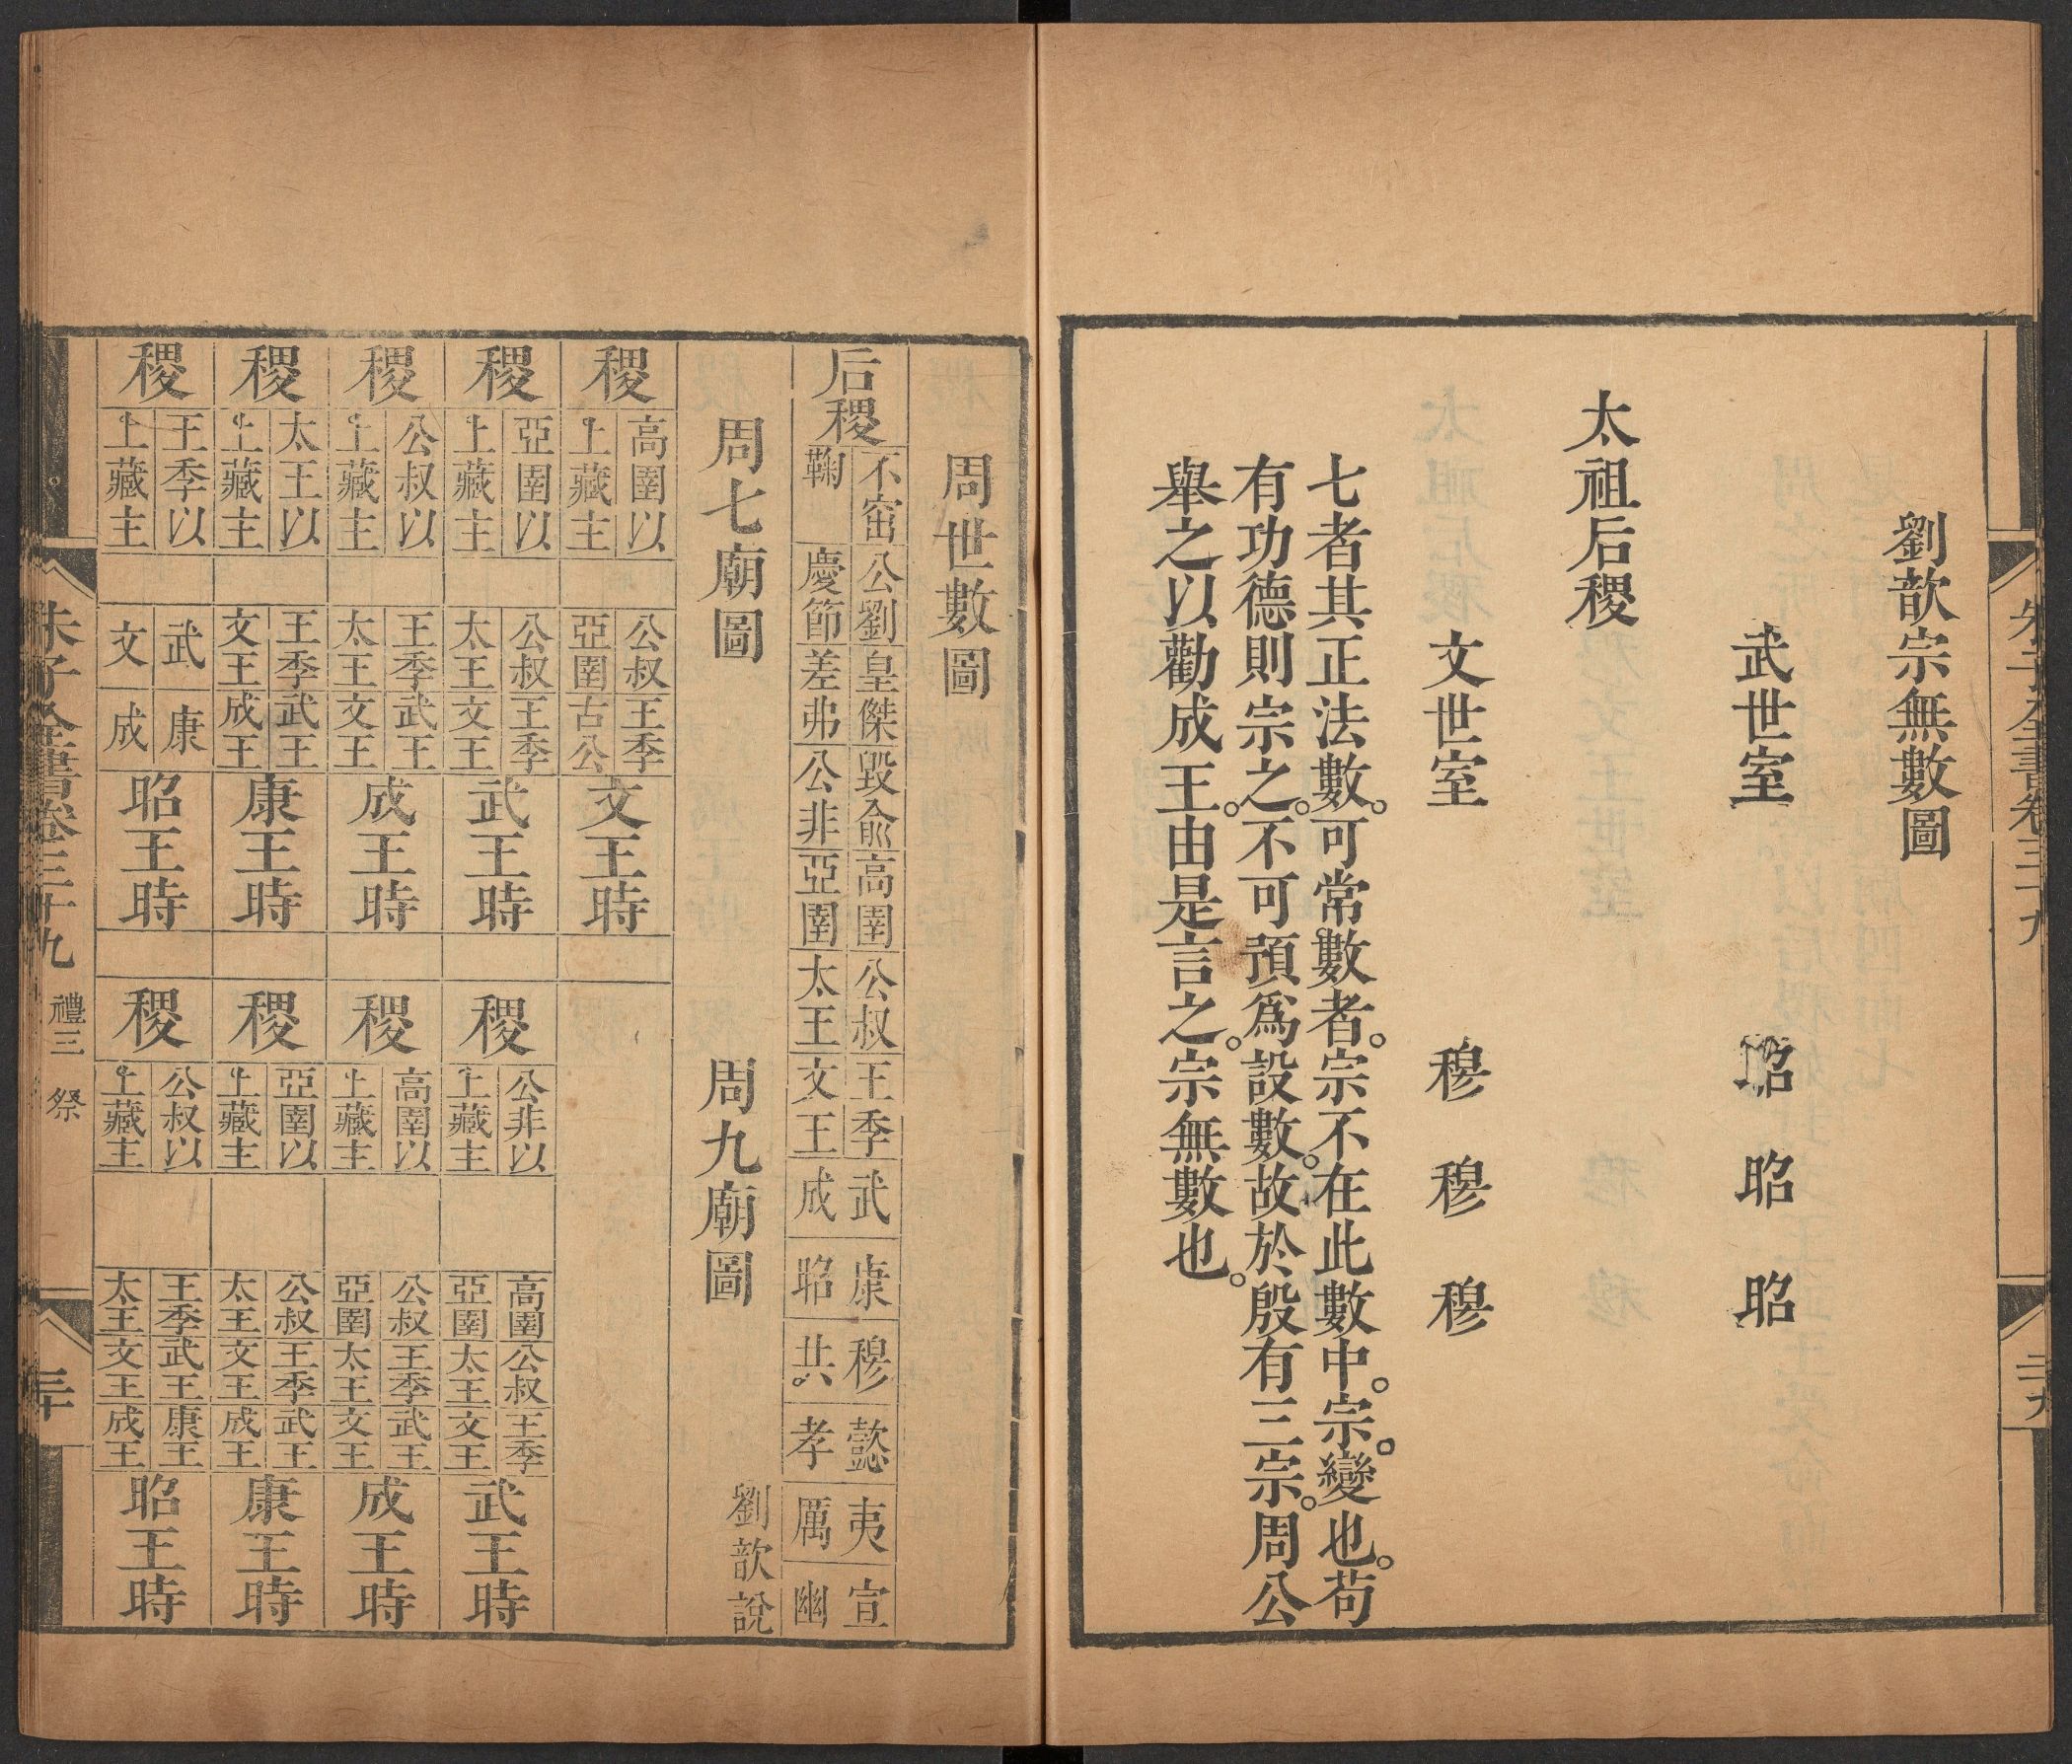 朱子全書卷三十九
二十九
劉歆宗無數圖
武世室 昭 昭 昭
太祖后稷
文世室 穆 穆 穆
七者其正法數。可常數者。宗不在此數中。宗。變也。苟
有功德則宗之。不可預爲設數。故於殷有三宗。周公
舉之以勸成王。由是言之。宗無數也。
周世數圖
后稷
不窋 公劉 皇傑 毀兪 高圉 公叔 王季 武 康 穆 懿 夷 宣
鞠 慶節 差弗 公非 亞圉 太王 文王 成 昭 共 孝 厲 幽
周七廟圖
周九廟圖 劉歆說
稷 高圉以上藏主 公叔 王季 亞圉 古公 文王時
稷 亞圉以上藏主 公叔 王季 太王 文王 武王時
稷 公非以上藏主 高圉 公叔 王季 亞圉 太王 文王 武王時
稷 公叔以上藏主 王季 武王 太王 文王 成王時
稷 高圉以上藏主 公叔 王季 武王 亞圉 太王 文王 成王時
稷 太王以上藏主 王季 武王 文王 成王 康王時
稷 亞圉以上藏主 公叔 王季 武王 太王 文王 成王 康王時
稷 王季以上藏主 武 康 文 成 昭王時
稷 公叔以上藏主 王季 武王 康王 太王 文王 成王 昭王時
朱子全書卷三十九 禮三 祭
三十